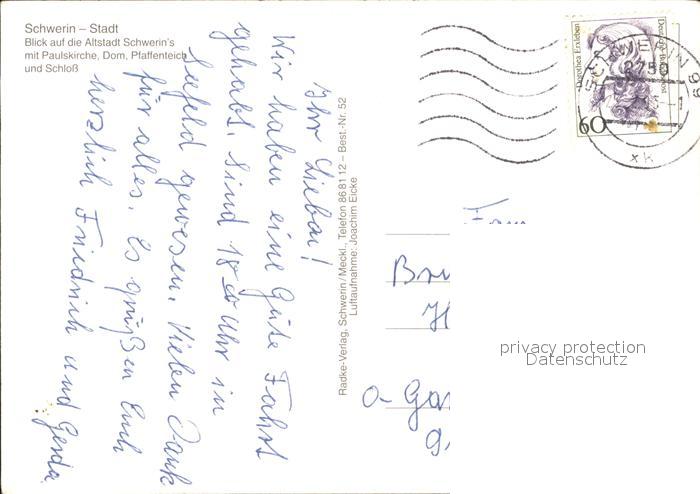 Schwerin – Stadt
Blick auf die Altstadt Schwerin's
mit Paulskirche, Dom, Pfaffenteich
und Schloß
Ihr Lieben!
Wir haben eine Gute Fahrt
gehabt. Sind 18 00 Uhr in
gewesen. Vielen Dank
für alles. Es grüßen Euch
herzlich Friedrich und Gerda
Radke-Verlag, Schwerin/Meckl., Telefon 86 81 12 – Best.-Nr. 52
Luftaufnahme: Joachim Eicke
Dorothea Erxleben
Deutsche Bundespost
60
SCHWERIN
2750
xk
Br
H
O- Ga
privacy protection
Datenschutz